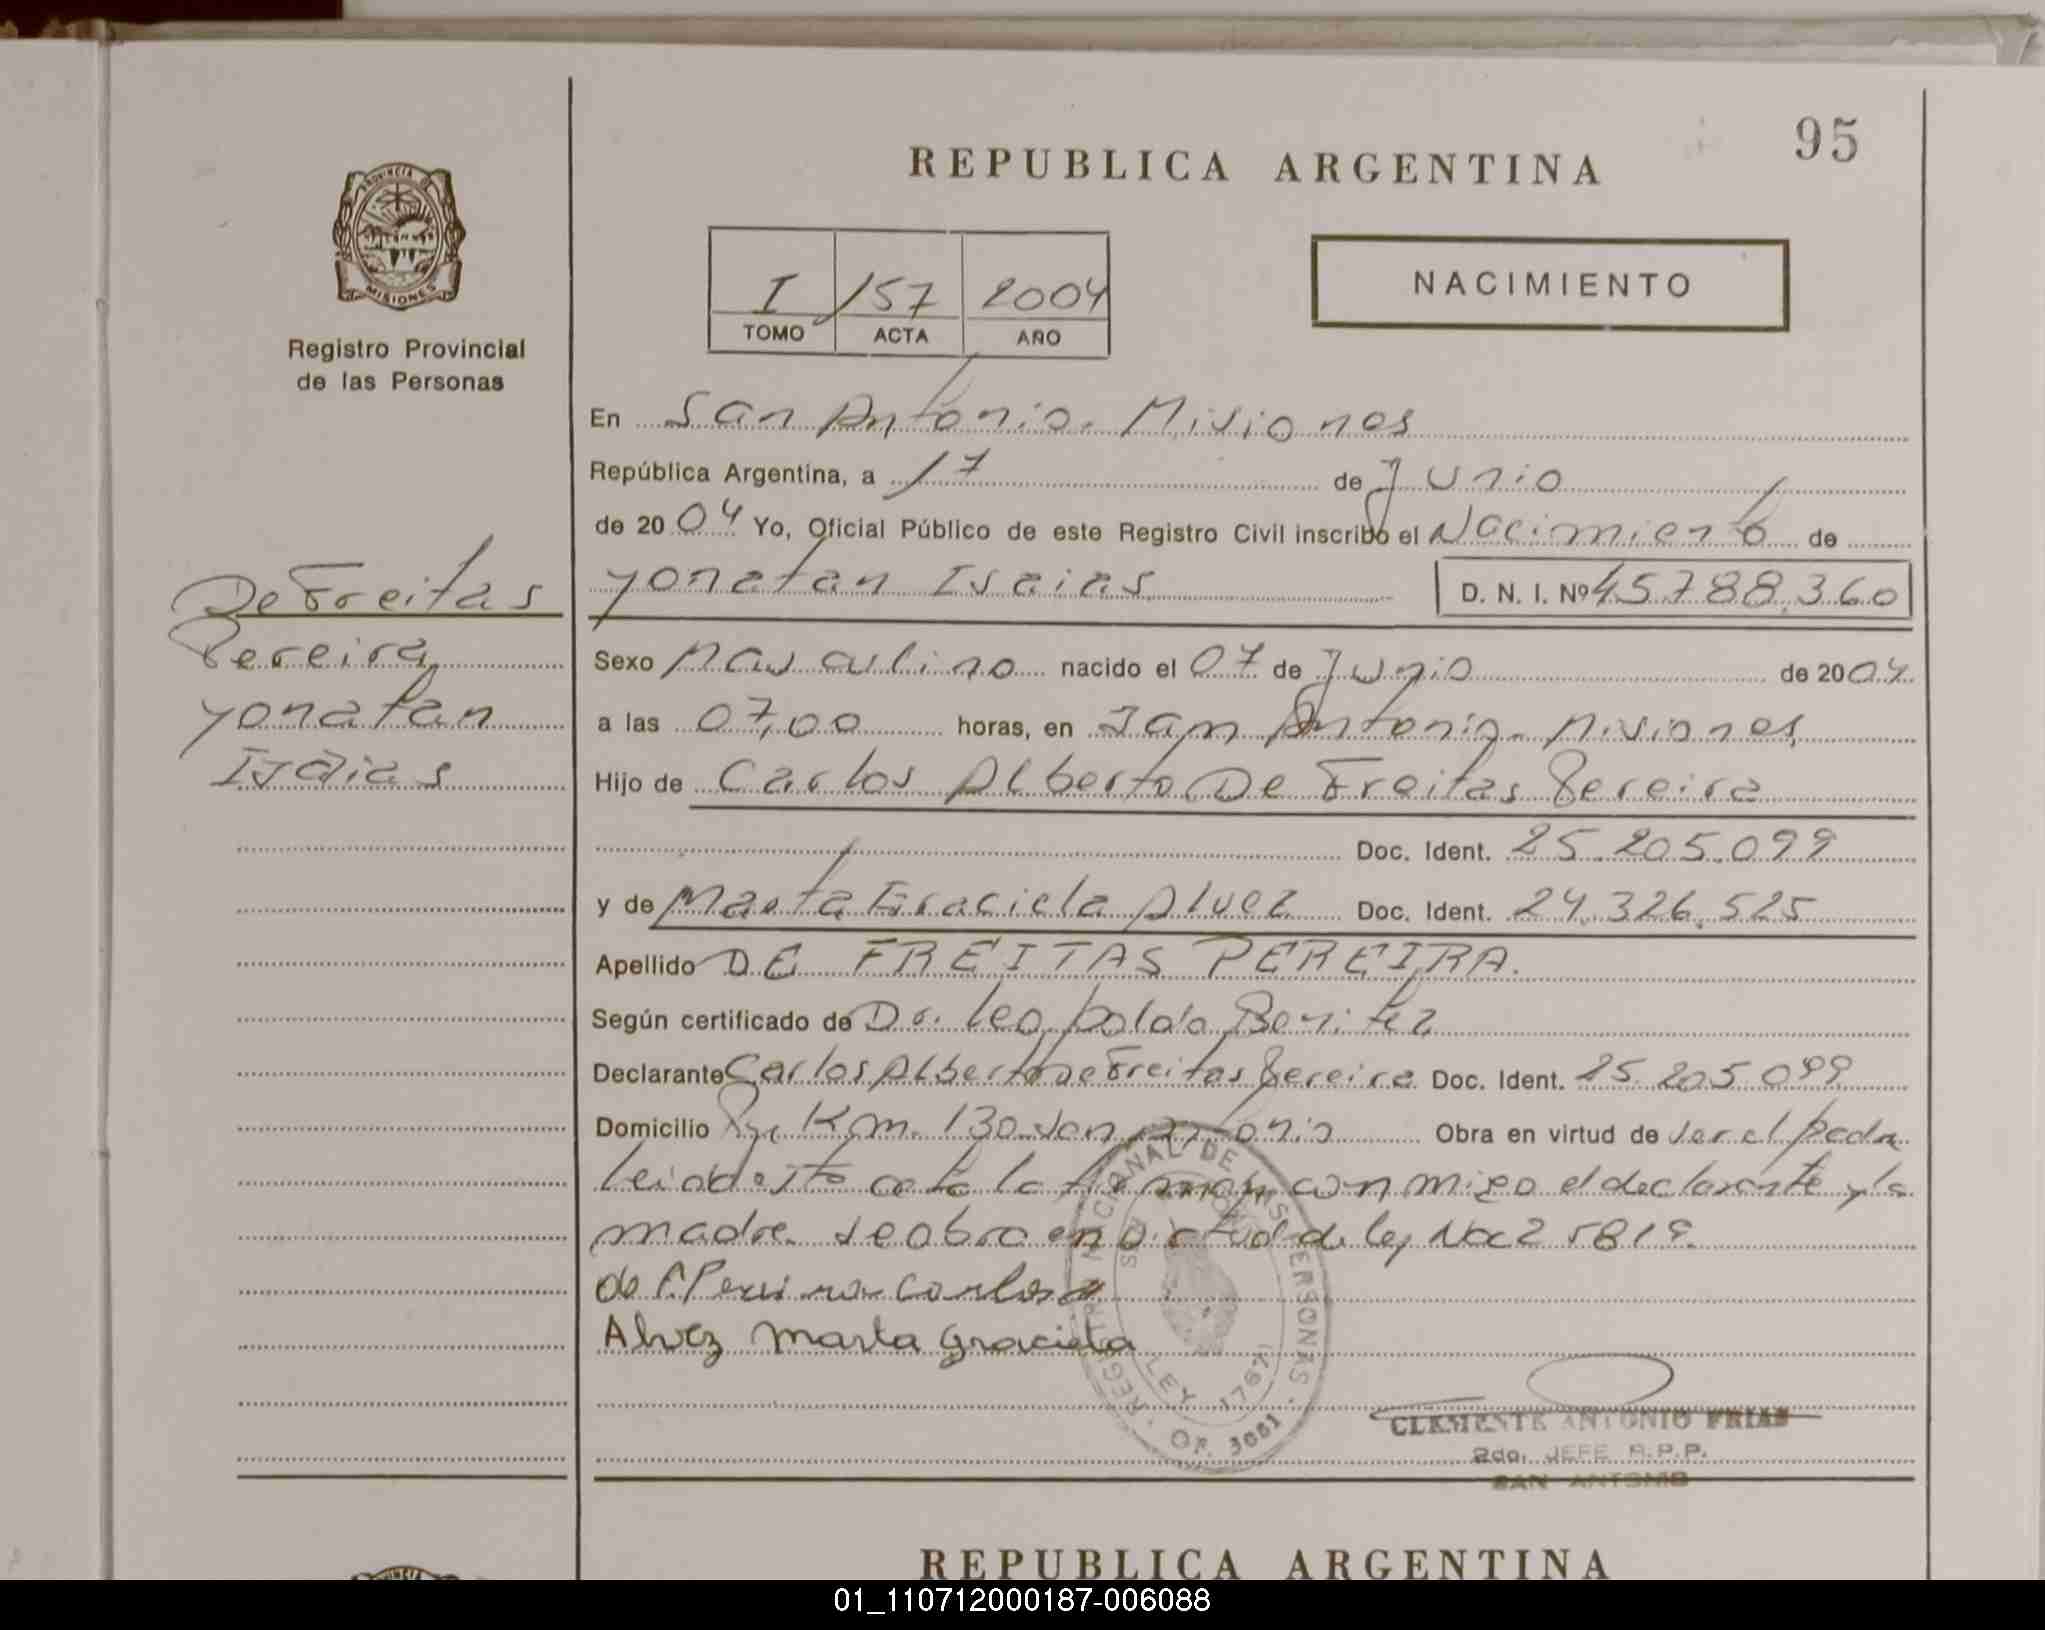 95
REPUBLICA ARGENTINA
PROVINCIA DE
MISIONES
Registro Provincial
de las Personas
I 157 2004
TOMO ACTA AÑO
NACIMIENTO
En San Antonio. Misiones
República Argentina, a 17 de Junio
de 2004 Yo, Oficial Público de este Registro Civil inscribo el Nacimiento de
Yonatan Isaias D. N. I. Nº 45.788.360
De Freitas
Pereira
Yonatan
Isaias
Sexo Masculino nacido el 07 de Junio de 2004
a las 07,00 horas, en San Antonio. Misiones
Hijo de Carlos Alberto De Freitas Pereira
Doc. Ident. 25.205.099
y de Marta Graciela Alvez Doc. Ident. 24.326.525
Apellido DE FREITAS PEREIRA.
Según certificado de Dr. Leopoldo Benitez
Declarante Carlos Alberto De Freitas Pereira Doc. Ident. 25.205.099
Domicilio Km. 130 San Antonio Obra en virtud de ser el padre
leido esto acta la firman con migo el declarante y la
madre. se obra en virtud de ley 25819.
de F. Pereira Carlos A
Alvez Marta Graciela
REGISTRO NACIONAL DE LAS PERSONAS
SAN ANTONIO
LEY 17671
OF. 3081
CLEMENTE ANTONIO FRIAS
2do. JEFE R.P.P.
SAN ANTONIO
REPUBLICA ARGENTINA
01_110712000187-006088